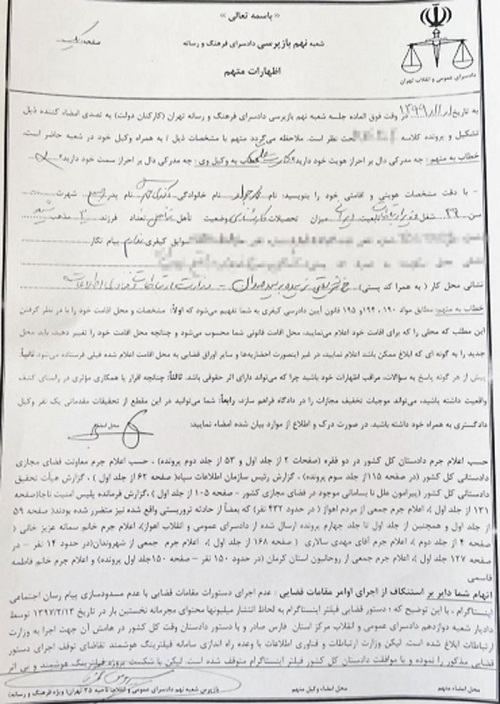 « باسمه تعالی »
شعبه نهم بازپرسی دادسرای فرهنگ و رسانه
صفحه یک
اظهارات متهم
دادسرای عمومی و انقلاب تهران
به تاریخ ۱۳۹۹ وقت فوق العاده جلسه شعبه نهم بازپرسی دادسرای فرهنگ و رسانه تهران (کارکنان دولت) به تصدی امضاء کننده ذیل
تشکیل و پرونده کلاسه تحت نظر است. ملاحظه می‌گردد متهم با مشخصات ذیل / به همراه وکیل خود در شعبه حاضر است.
خطاب به متهم: چه مدرکی دال بر احراز هویت خود دارید؟ خطاب به وکیل وی: چه مدرکی دال بر احراز سمت خود دارید؟
- با دقت مشخصات هویتی و اقامتی خود را بنویسید: نام نام خانوادگی نام پدر شهرت
سن ۳۹ شغل تابعیت میزان تحصیلات وضعیت تأهل تعداد فرزند ۲ مذهب
سوابق کیفری ندارم پیام نگار
نشانی محل کار (به همرا کد پستی)
خطاب به متهم: مطابق مواد ۱۹۰، ۱۹۴ و ۱۹۵ قانون آیین دادرسی کیفری به شما تفهیم می‌شود که اولاً: مشخصات و محل اقامت خود را با در نظر گرفتن
این مطلب که محلی را که برای اقامت خود اعلام می‌نمایید، محل اقامت قانونی شما محسوب می‌شود و چنانچه محل اقامت خود را تغییر دهید، باید محل
جدید را به گونه ای که ابلاغ ممکن باشد اعلام نمایید، در غیر اینصورت احضاریه‌ها و سایر اوراق قضایی به محل اقامت اعلام شده قبلی فرستاده می‌شود. ثانیاً:
پیش از هر گونه پاسخ به سؤالات، مراقب اظهارات خود باشید چرا که می‌تواند دارای اثر حقوقی باشد. ثالثاً: چنانچه اقرار یا همکاری مؤثری در راستای کشف
واقعیت داشته باشید، می‌تواند موجبات تخفیف مجازات را در دادگاه فراهم سازد. رابعاً: شما می‌توانید در این مقطع از تحقیقات مقدماتی یک نفر وکیل
دادگستری به همراه خود داشته باشید. در صورت درک و اطلاع از موارد بیان شده امضاء نمایید: محل امضاء
حسب اعلام جرم دادستان کل کشور در دو فقره (صفحات ۲ از جلد اول و ۵۳ از جلد دوم پرونده)، اعلام جرم معاونت فضای مجازی
دادستانی کل کشور (صفحه ۱۱۵ از جلد سوم پرونده)، گزارش رئیس سازمان اطلاعات سپاه( صفحه ۶۲ از جلد اول )، گزارش هیأت تحقیق
دادستانی کل کشور (پیرامون علل نا بسامانی موجود در فضای مجازی کشور - صفحه ۱۰۵ از جلد اول)، گزارش فرمانده پلیس امنیت ناجا(صفحه
۱۳۱ از جلد اول)، اعلام جرم جمعی از مردم اهواز ( در حدود ۴۳۲ نفر) که بعضاً از حادثه تروریستی واقع شده نیز متضرر شده بودند( صفحه ۵۹
از جلد اول و همچنین از جلد اول تا جلد چهارم پرونده ارسال شده از دادسرای عمومی و انقلاب اهواز)، اعلام جرم خانم سمانه عزیز خانی (
صفحه ۴ از جلد دوم )، اعلام جرم آقای مهدی سالاری ( صفحه ۱۶۸ از جلد اول )، اعلام جرم جمعی از شهروندان(در حدود ۱۴ نفر - در
صفحه ۱۲۷ جلد اول )، اعلام جرم جمعی از روحانیون استان کرمان (در حدود ۱۵۰ نفر - صفحه ۱۵۰جلد اول پرونده) و اعلام جرم خانم فاطمه
قاسمی
اتهام شما دایر بر استنکاف از اجرای اوامر مقامات قضایی : عدم اجرای دستورات مقامات قضایی با عدم مسدودسازی پیام رسان اجتماعی
اینستاگرام ، با این توضیح که : دستور قضایی فیلتر اینستاگرام به لحاظ انتشار میلیونها محتوای مجرمانه نخستین بار در تاریخ ۱۳۹۷/۲/۱۳ توسط
دادیار شعبه دوازدهم دادسرای عمومی و انقلاب مرکز استان فارس صادر و با دستور دادستان وقت کل کشور در هامش آن جهت اجرا به وزارت
ارتباطات ابلاغ شده است. لیکن وزارت ارتباطات و فناوری اطلاعات با وعده راه اندازی سامانه فیلترینگ هوشمند تقاضای توقف اجرای دستور
قضایی مذکور را نموده و با موافقت دادستان کل کشور فیلتر اینستاگرام متوقف شده است. لیکن با شکست پروژه فیلترینگ هوشمند و بی اثر
محل امضاء متهم محل امضاء وکیل متهم بازپرس شعبه نهم دادسرای عمومی و انقلاب ناحیه ۲۵ تهران( ویژه فرهنگ و رسانه)